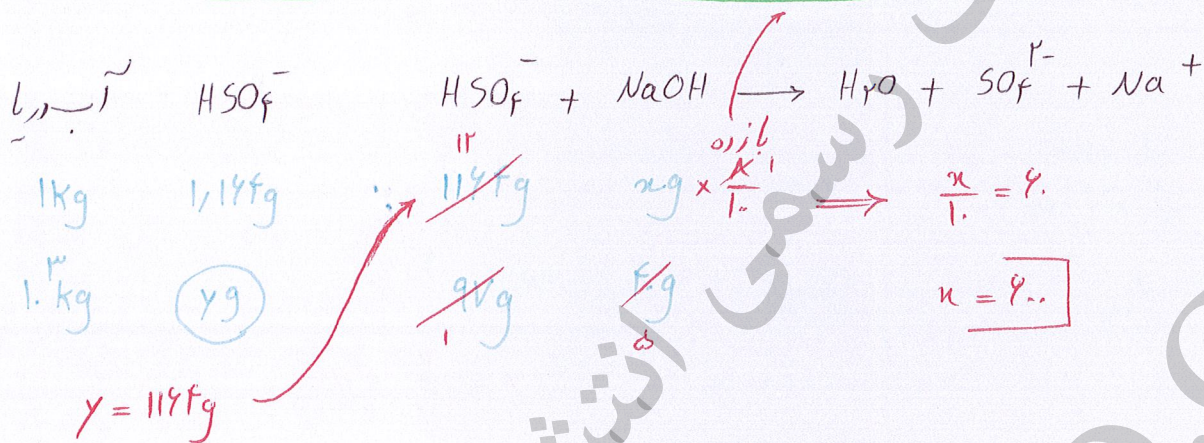 آب دریا HSO۴⁻ HSO۴⁻ + NaOH → H۲O + SO۴²⁻ + Na⁺
۱kg ۱,۱۶۴g : ۱۱۶۴g ۱۲ xg × ۸/۱۰۰ ۱ بازده ⟹ x/۱۰ = ۶۰
۱۰³kg yg ۹۷g ۱ ۴۰g ۵ x = ۶۰۰
y = ۱۱۶۴g
رسمی